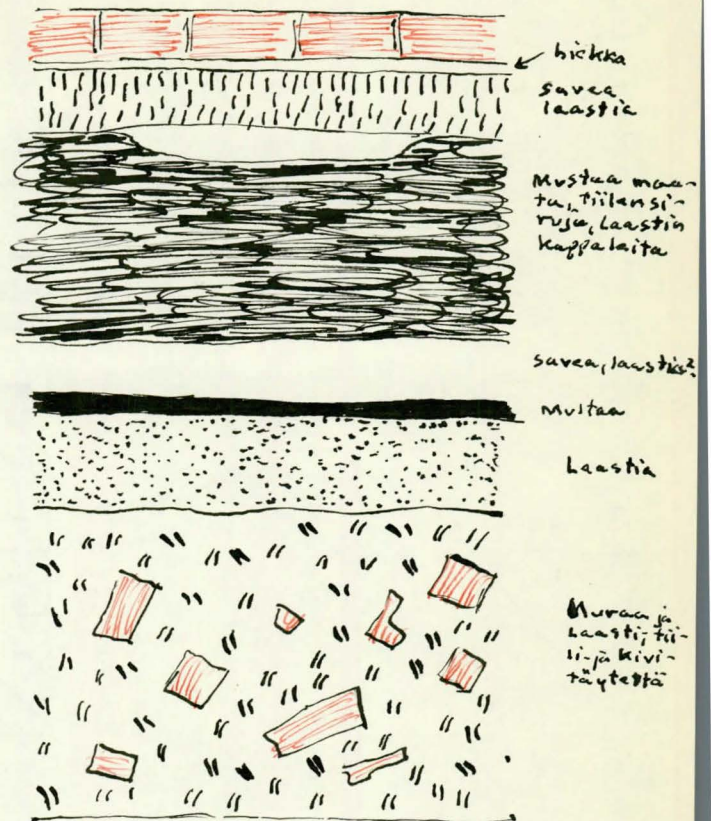 hiekka
savea
laastia
Mustaa maa-
ta, tiilensi-
ruja, laastin
kappaleita
savea, laastia?
Mustaa
Laastia
Muraa ja
Laasti, tii-
li- ja kivi-
täytettä